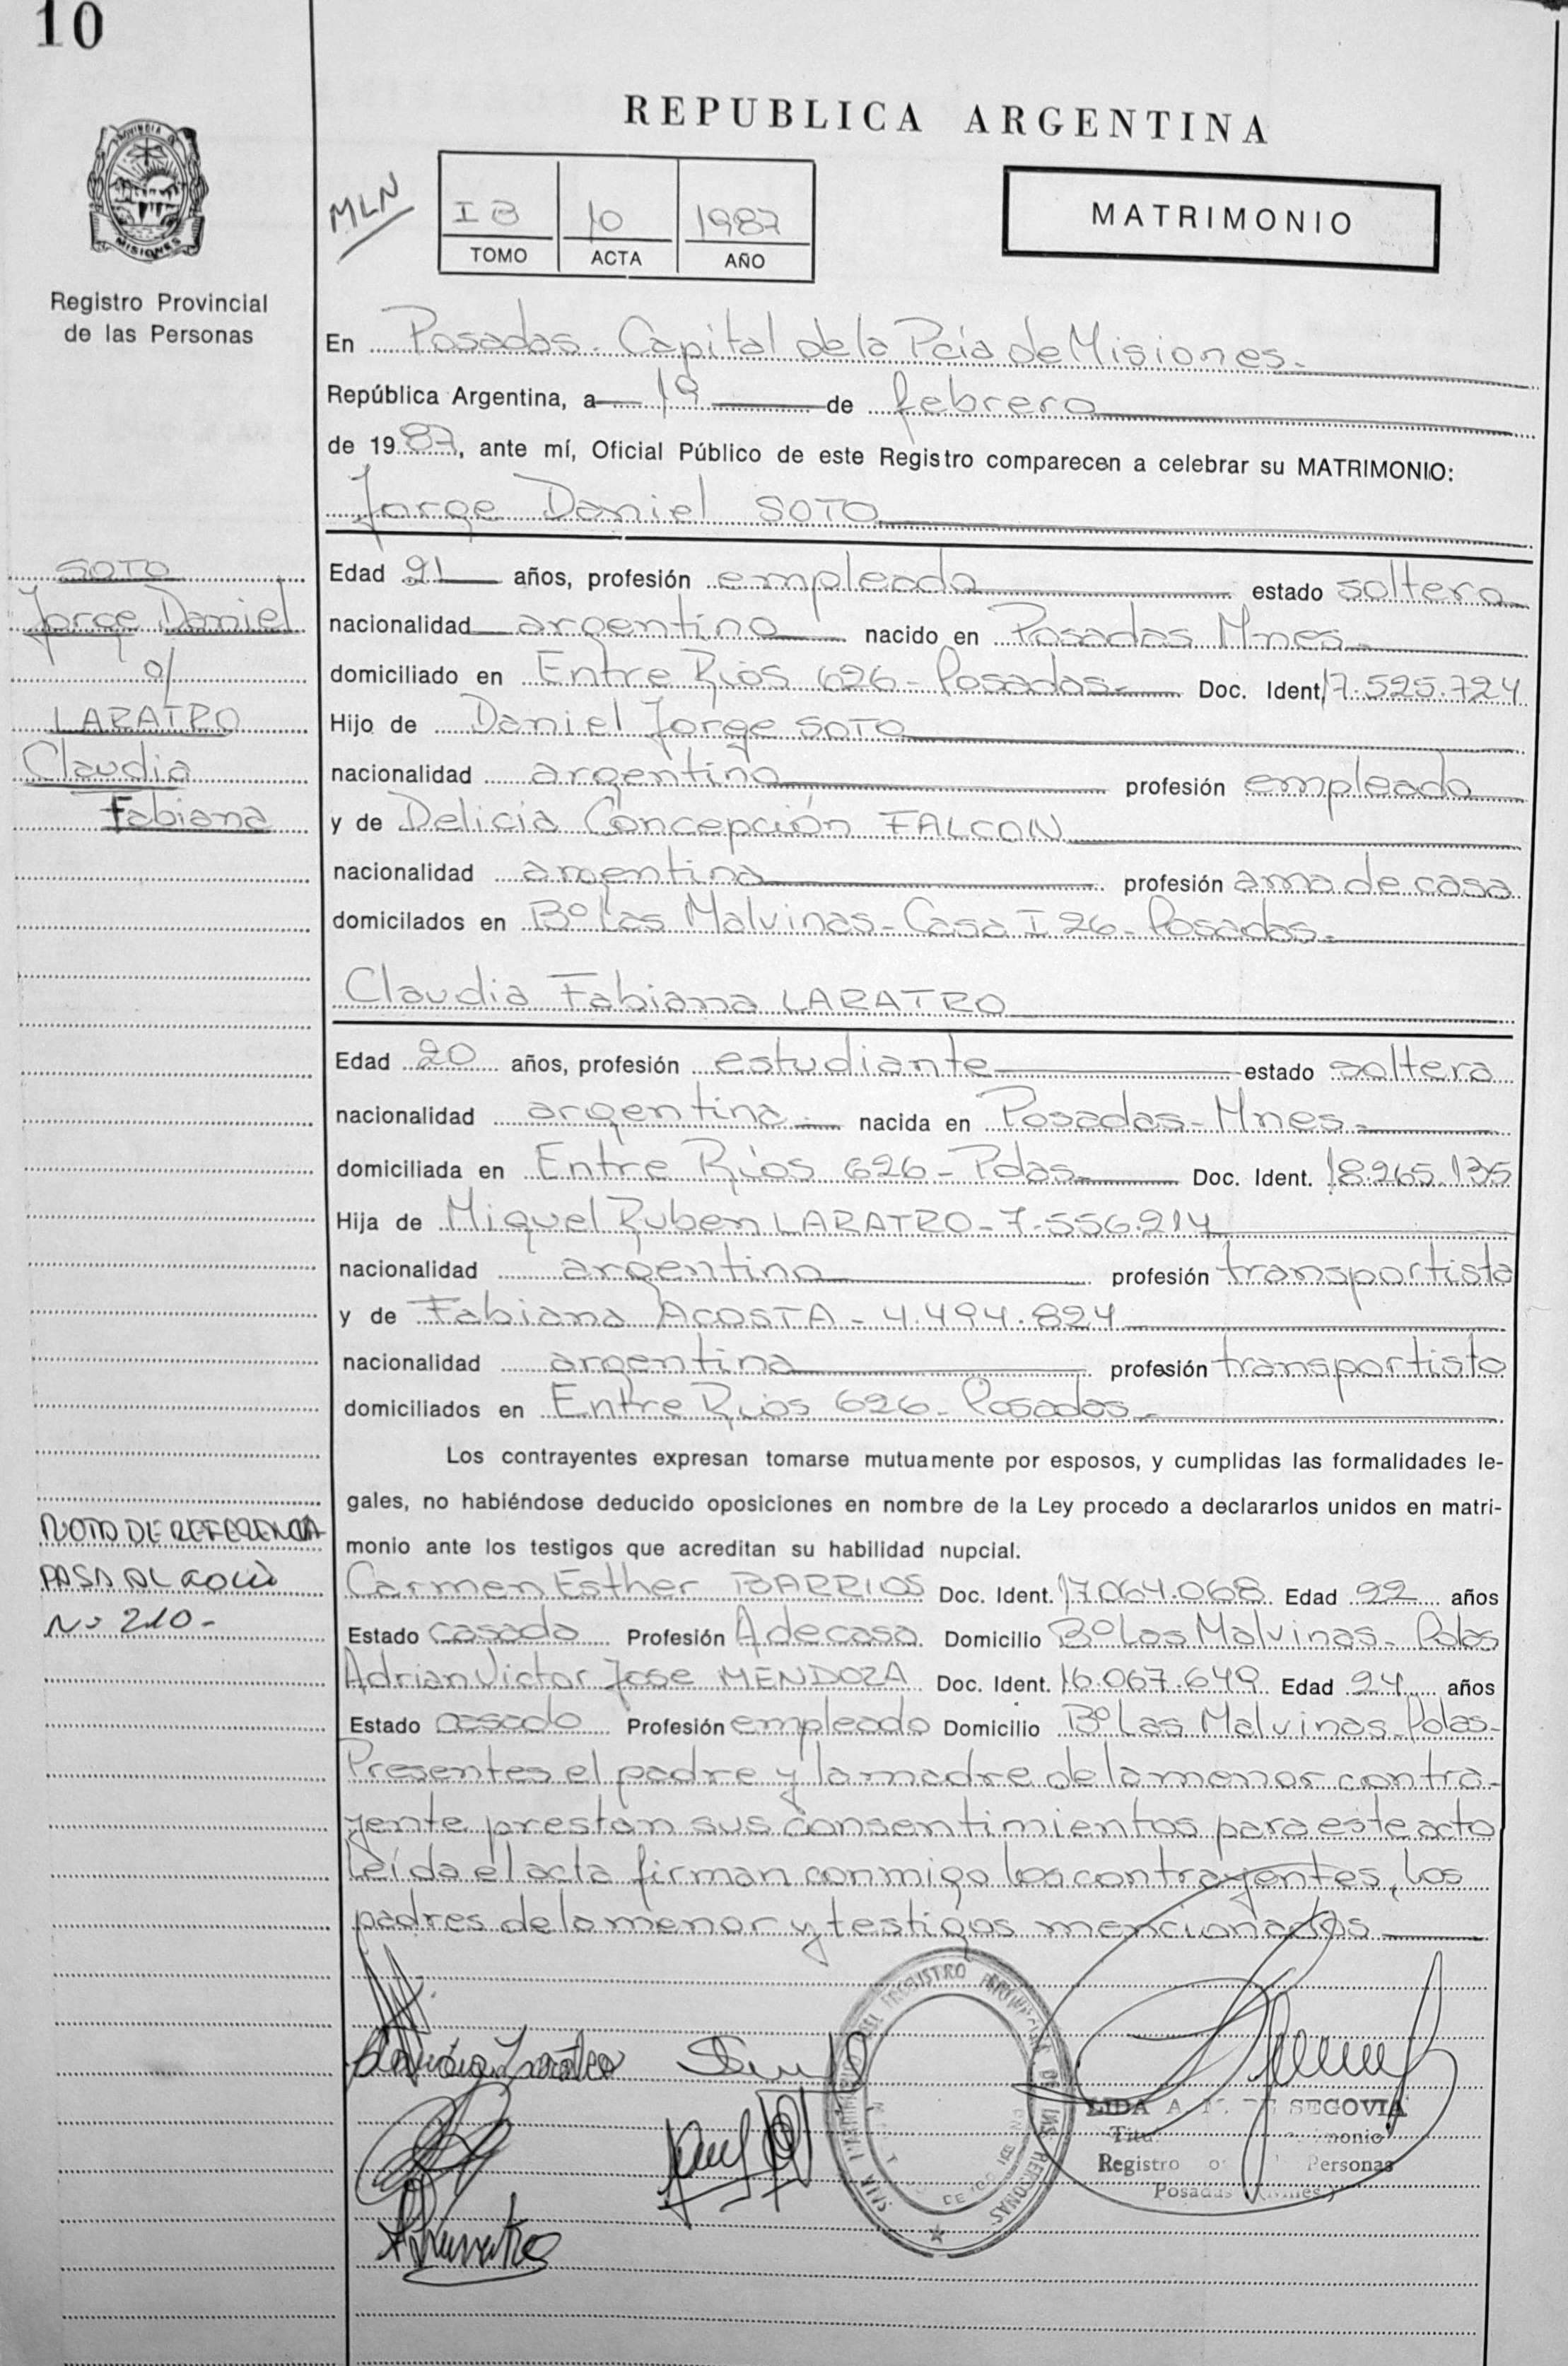 10
REPUBLICA ARGENTINA
PROVINCIA D
MISIONES
Registro Provincial
de las Personas
MLN
I B 10 1987
TOMO ACTA AÑO
MATRIMONIO
En Posadas - Capital de la Pcia de Misiones.
República Argentina, a 19 de febrero
de 1987, ante mí, Oficial Público de este Registro comparecen a celebrar su MATRIMONIO:
Jorge Daniel SOTO
SOTO
Jorge Daniel
c/
LARATRO
Claudia
Fabiana
Edad 21 años, profesión empleado estado soltero
nacionalidad argentino nacido en Posadas Mnes-
domiciliado en Entre Ríos 626 - Posadas- Doc. Ident. 17.525.724
Hijo de Daniel Jorge SOTO
nacionalidad argentino profesión empleado
y de Delicia Concepción FALCON
nacionalidad argentina profesión ama de casa
domicilados en Bº Las Malvinas - Casa I 26 - Posadas-
Claudia Fabiana LARATRO
Edad 20 años, profesión estudiante estado soltera
nacionalidad argentina nacida en Posadas - Mnes-
domiciliada en Entre Ríos 626 - Pdas- Doc. Ident. 18.265.135
Hija de Miguel Ruben LARATRO - 7.556.214
nacionalidad argentino profesión transportista
y de Fabiana ACOSTA - 4.494.824
nacionalidad argentina profesión transportista
domiciliados en Entre Ríos 626 - Posadas-
Los contrayentes expresan tomarse mutuamente por esposos, y cumplidas las formalidades le-
gales, no habiéndose deducido oposiciones en nombre de la Ley procedo a declararlos unidos en matri-
monio ante los testigos que acreditan su habilidad nupcial.
NOTA DE REFERENCIA
PASA AL FOLIO
Nº 210-
Carmen Esther BARRIOS Doc. Ident. 17.064.068 Edad 22 años
Estado casada Profesión A de casa Domicilio Bº Las Malvinas - Pdas
Adrian Victor Jose MENDOZA Doc. Ident. 16.067.649 Edad 24 años
Estado casado Profesión empleado Domicilio Bº Las Malvinas - Pdas-
Presentes el padre y la madre de la menor contra-
yente prestan sus consentimientos para este acto
leída el acta firman conmigo los contrayentes, los
padres de la menor y testigos mencionados
Claudia Laratro
DEL REGISTRO PROVINCIAL DE LAS PERSONAS
LIDA A. DE SEGOVIA
Registro Personas
Posadas (Mnes.)